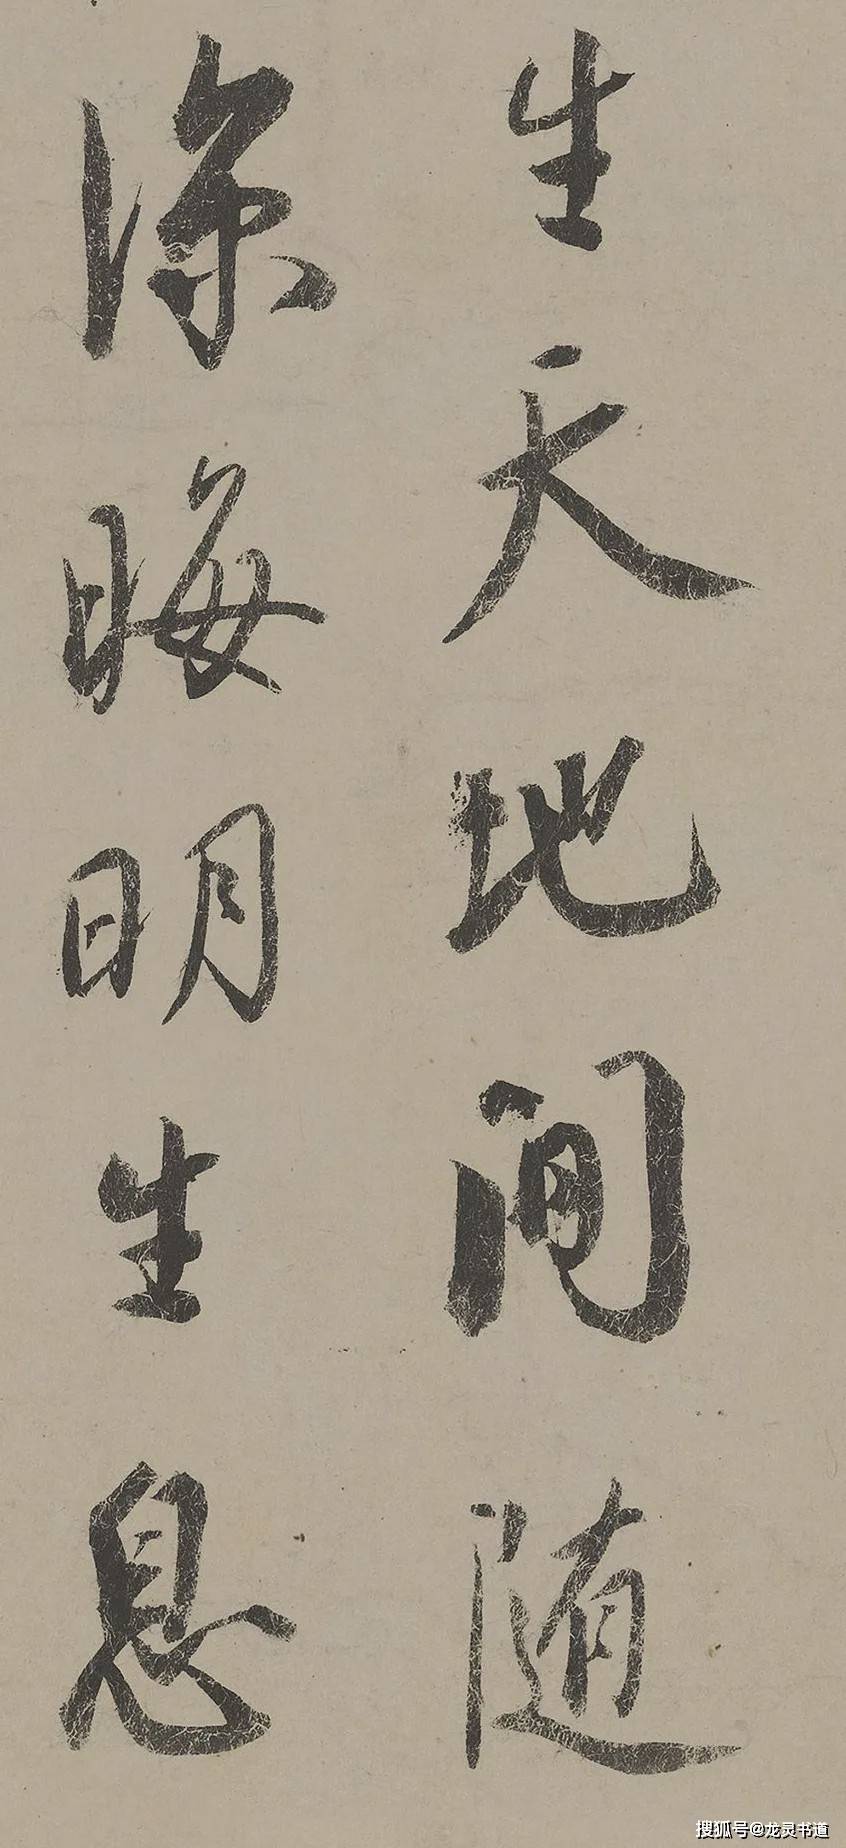 生天地間随
深晦明生息
搜狐号@龙灵书道